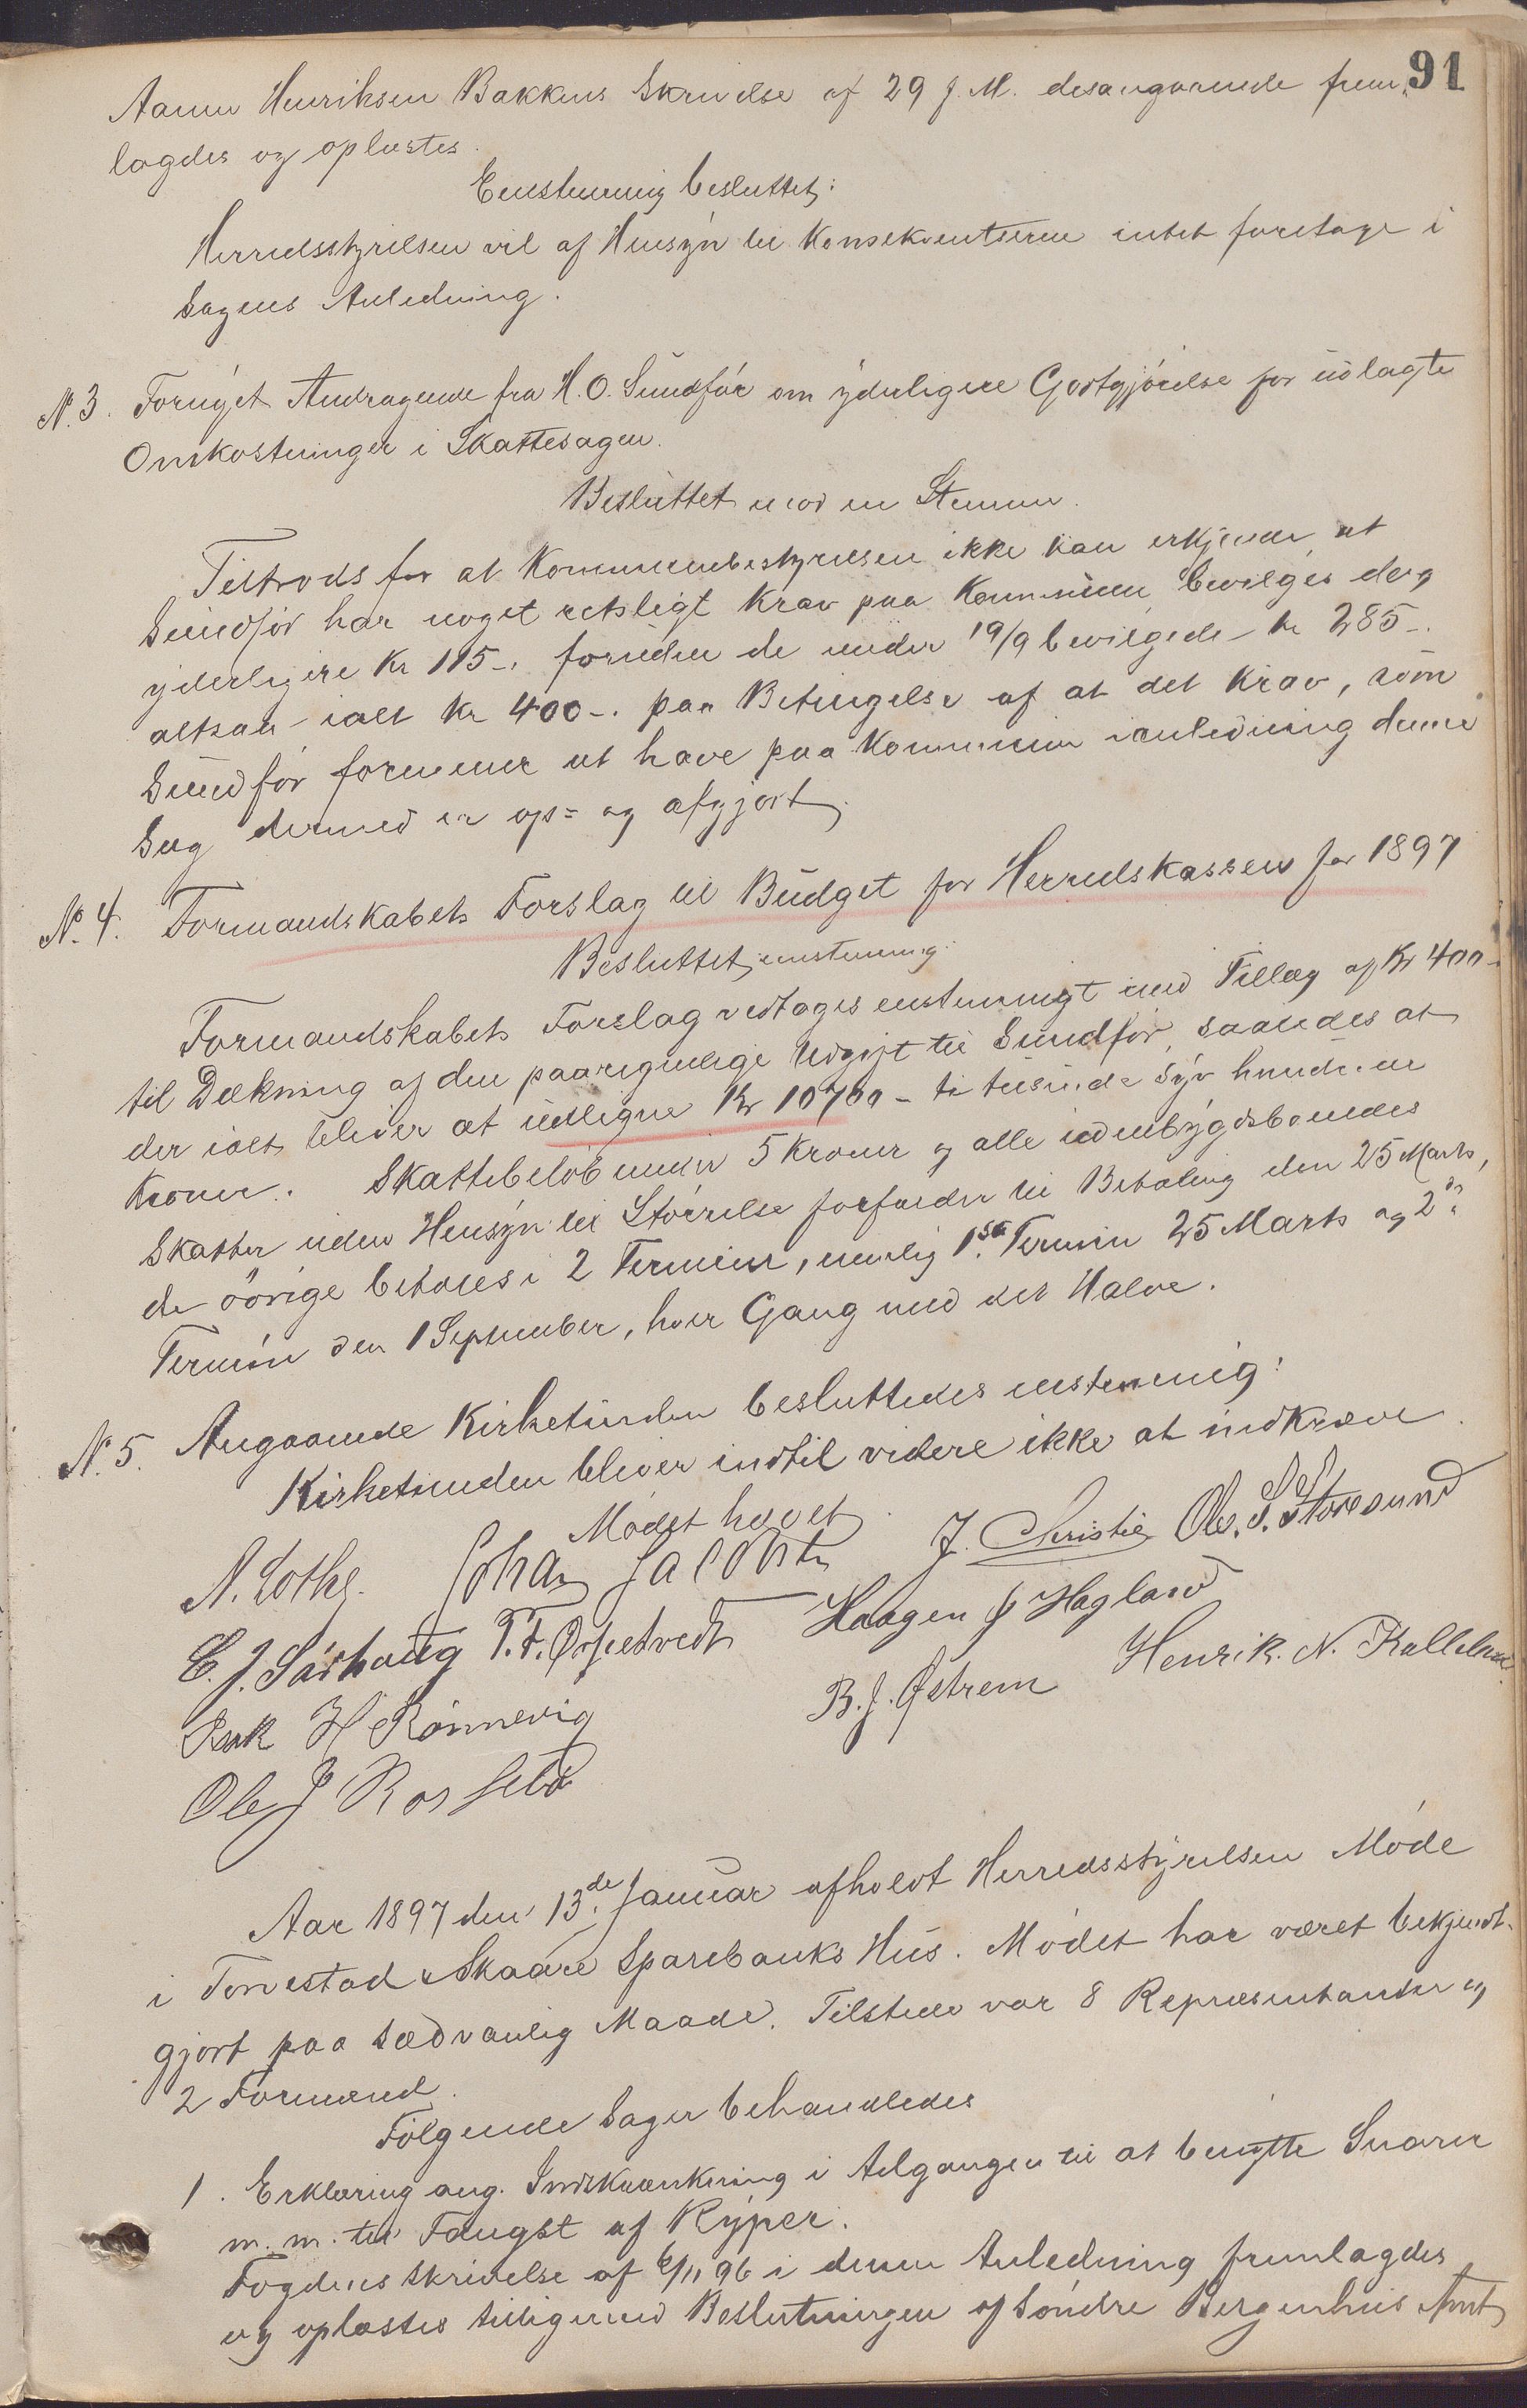 91
Aamu Henriksen Bakkens Skrivelse af 29 f. M. desangaaende frem-
lagdes og oplæstes.
Eenstemmig besluttet:
Herredsstyrelsen vil af Hensyn til Konsekventserne intet foretage i
Sagens Anledning.
No. 3. Fornyet Andragende fra H. O. Sundför om yderligere Godtgjörelse for udlagte
Omkostninger i Skattesagen.
Besluttet mod en Stemme.
Tiltrods for at Kommunebestyrelsen ikke kan erkjende, at
Sundför har noget retsligt Krav paa Kommunen, bevilges dog
yderligere Kr 115-. foruden de under 19/9 bevilgede Kr 285-.
altsaa ialt Kr 400-. paa Betingelse af at det Krav, som
Sundför formener at have paa Kommunen i anledning denne
Sag dermed er op= og afgjort.
No. 4. Formandskabets Forslag til Budget for Herredskassen for 1897
Besluttet enstemmig:
Formandskabets Forslag vedtages enstemmigt med Tillæg af Kr 400-
til Dækning af den paaregnelige Udgift til Sundför, saaledes at
der ialt bliver at udligne Kr 10700- ti tusinde syv hundrede
Kroner. Skattebelöb under 5 Kroner og alle udenbygdsboendes
Skatter uden Hensyn til Störrelse forfalder til Betaling den 25 Marts,
de övrige betales i 2 Terminer, nemlig 1ste Termin 25 Marts og 2den
Termin den 1 September, hver Gang med det Halve.
No. 5. Angaaende Kirketienden besluttedes enstemmig:
Kirketienden bliver indtil videre ikke at indkræve.
Mödet hævet.
N. Lothe. Johan Jacobsen J. Christie Ole. S. Storesund
E. J. Sörhaug T. T. Örpetvedt Haagen J Hagland
Isak H Rönnevig B. J. Østrem Henrik. N. Kallekod
Ole J Rossebö
Aar 1897 den 13de Januar afholdt Herredsstyrelsen Möde
i Torvestad & Skaare Sparebanks Hus. Mödet har været bekjendt-
gjort paa sædvanlig Maade. Tilstede var 8 Repræsentanter og
2 Formænd.
Fölgende Sager behandledes
1. Erklæring ang. Indskrænkning i Adgangen til at benytte Snarer
m. m. til Fangst af Ryper.
Fogdens Skrivelse af 6/11 96 i denne Anledning fremlagdes
og oplæstes tilligemed Beslutningen af Söndre Bergenhus Amt